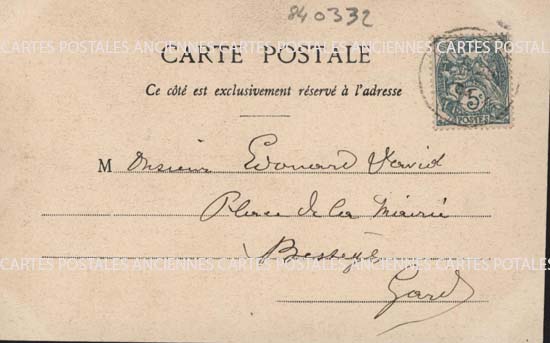 840332
CARTES POSTALES ANCIENNES CARTES POSTALES ANCIENNES CARTES POSTALES
CARTE POSTALE
Ce côté est exclusivement réservé à l'adresse
5c
POSTES
Monsieur Edouard David
Place de la Mairie
Bessèges
Gard
CARTES POSTALES ANCIENNES CARTES POSTALES ANCIENNES CARTES POSTALES